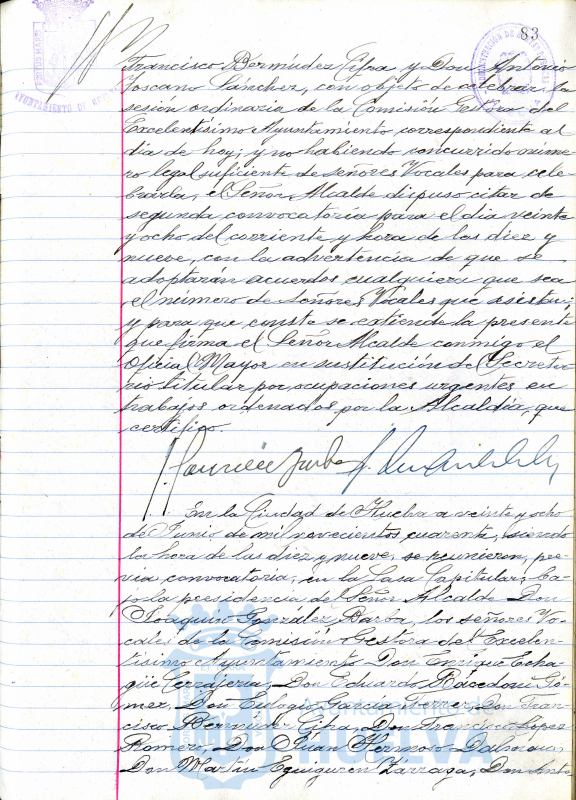 83
Francisco Bermúdez Cifra y Don Antonio
Toscano Sánchez, con objeto de celebrar la
sesión ordinaria de la Comisión Gestora del
Excelentísimo Ayuntamiento correspondiente al
día de hoy; y no habiendo concurrido núme-
ro legal suficiente de señores Vocales para cele-
brarla, el Señor Alcalde dispuso citar de
segunda convocatoria para el día veinte
y ocho del corriente y hora de las diez y
nueve, con la advertencia de que se
adoptarán acuerdos cualquiera que sea
el número de Señores Vocales que asistan;
y para que conste se extiende la presente
que firma el Señor Alcalde conmigo el
Oficial Mayor en sustitución del Secreta-
rio titular por ocupaciones urgentes en
trabajos ordenados por la Alcaldía, que
certifico.
En la Ciudad de Huelva a veinte y ocho
de Junio de mil novecientos cuarenta, siendo
la hora de las diez y nueve, se reunieron, pre-
via convocatoria, en la Casa Capitular, ba-
jo la presidencia del Señor Alcalde Don
Joaquín González Barba, los señores Vo-
cales de la Comisión Gestora del Excelen-
tísimo Ayuntamiento Don Enrique Echa-
güe Cerrajería, Don Eduardo Rácedoni Gó-
mez, Don Eulogio García Ferrer, Don Fran-
cisco Bermúdez Cifra, Don Francisco López
Romero, Don Juan Hermoso Dalmau,
Don Martín Eguiguren Zarraga, Don Anto-
Ayuntamiento de
HUELVA